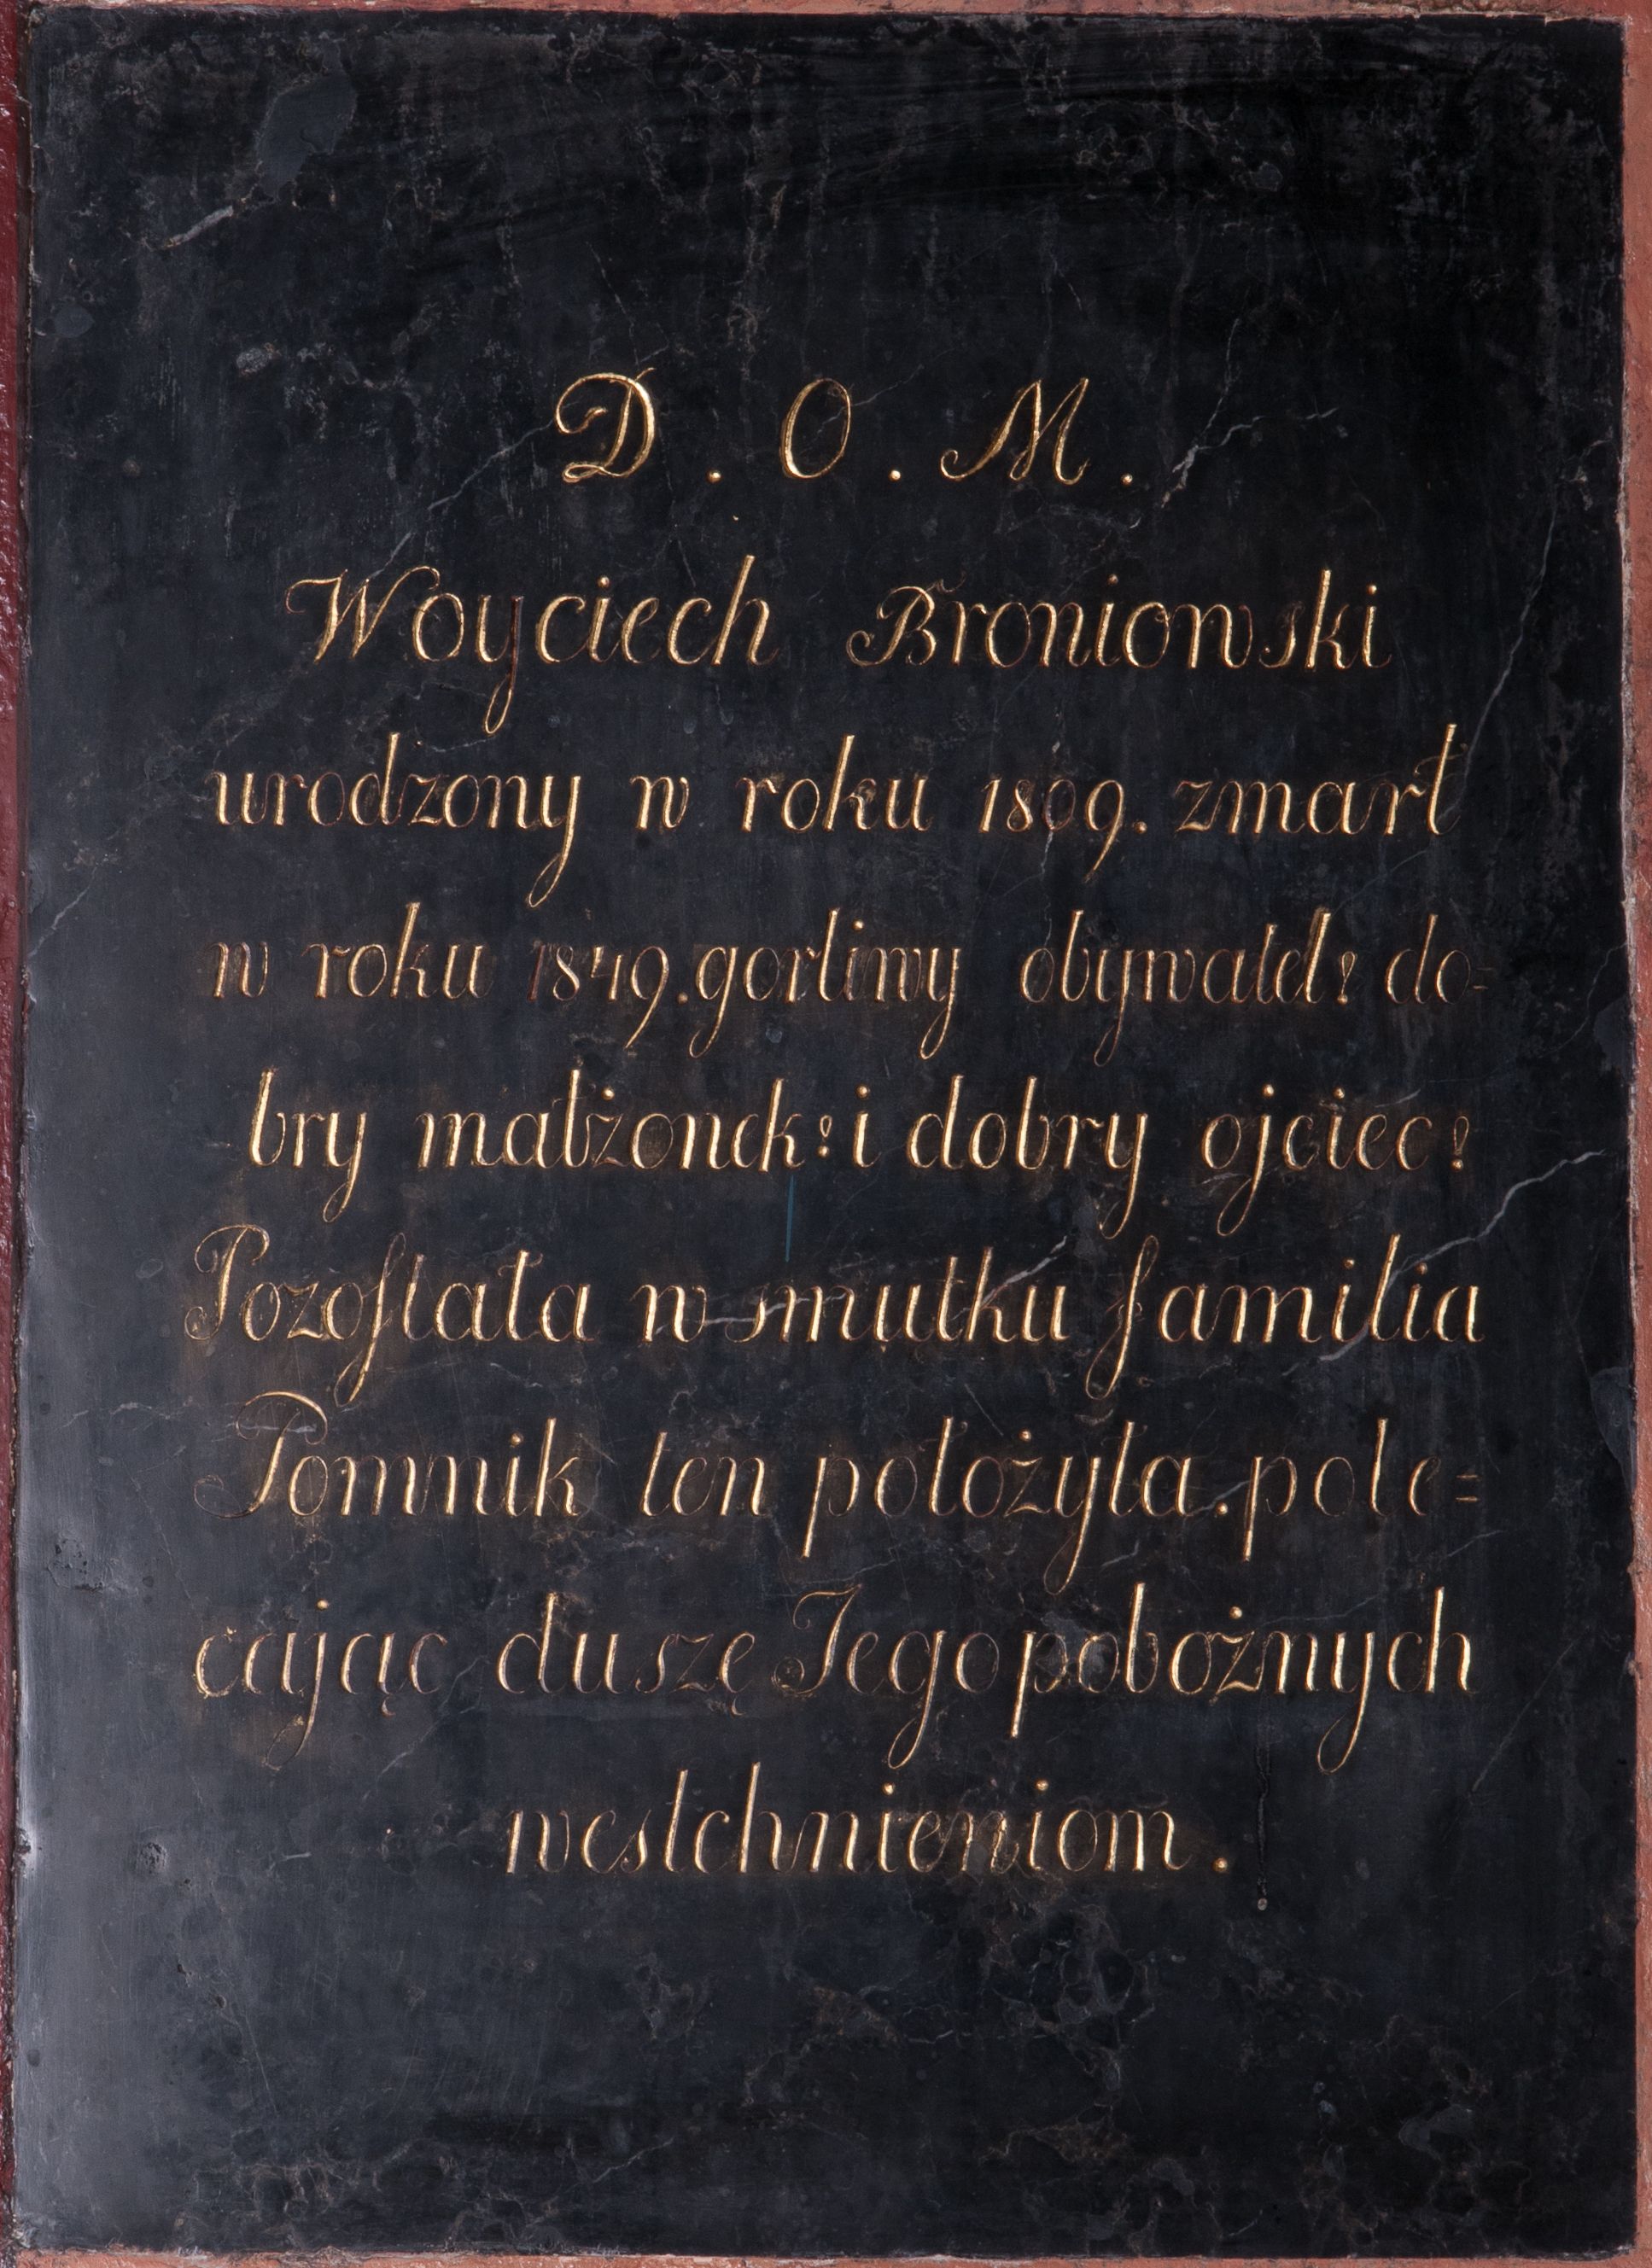 D. O. M.
Woyciech Broniowski
urodzony w roku 1809. zmarł
w roku 1849. gorliwy obywatel! do-
bry małżonek! i dobry ojciec!
Pozoſtała w smutku familia
Pomnik ten położyła. pole=
cając duszę Jego pobożnych
westchnieniom.